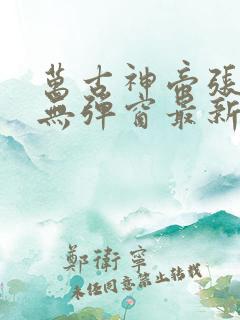 萬古神帝張
無彈窗最新
鄭衛寧
未经同意禁止转载